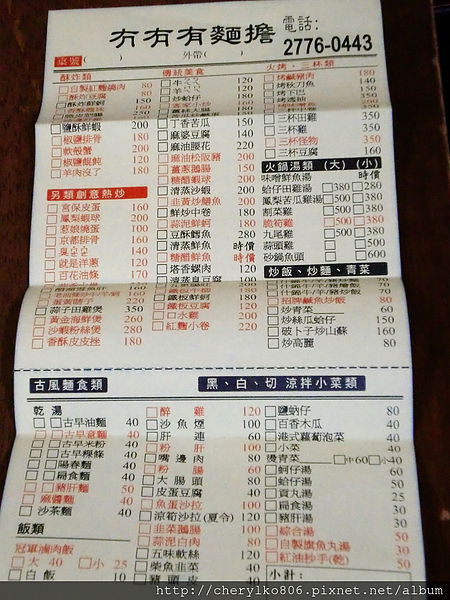 冇有有麵擔
電話:
2776-0443
桌號( ) 外帶( )
酥炸類
自製紅麴燒肉 80
酥炸豆腐 80
酥炸鮮蚵 150
鹽酥鮮蝦 200
椒鹽排骨 180
軟殼蟹 200
椒鹽餛飩 120
羊肉沒了 180
另類創意熱炒
宮保皮蛋 160
鳳梨蝦球 200
惹娘燒蛋 100
京都排骨 160
就是洋蔥 120
百花油條 170
蒜子田雞煲 350
黃金海鮮煲 260
沙蝦粉絲煲 280
香酥皮皮挫 180
傳統美食
牛 120
羊 120
炒蛤仔 120
丁香苦瓜 150
麻婆豆腐 140
麻油腰花 220
麻油松阪豬 200
薑蔥鵝腸 150
糖醋蝦球 200
清蒸沙蝦 200
韭黃炒鱔魚 200
鮮炒中卷 180
蒜泥鮮蚵 180
豆酥鱈魚 250
清蒸鮮魚 時價
糖醋鮮魚 時價
塔香螺肉 120
清蒸臭豆腐
鐵板鮮蚵 180
鐵板豆腐 180
口水雞 200
紅麴小卷 220
火烤、三杯類
烤鹹豬肉 180
烤秋刀魚 140
烤下巴
烤透抽
三杯田雞 350
三杯雞 350
三杯怪物 350
三杯豆腐 140
火鍋湯類 (大)(小)
味噌鮮魚湯 時價
蛤仔田雞湯 380 280
鳳梨苦瓜雞湯 500 380
割菜雞 500 380
脆筍雞 500 380
九尾雞 500 380
蒜頭雞 500
砂鍋魚頭 600
炒飯、炒麵、青菜
招牌鹹魚炒飯 80
炒青菜 60
炒絲瓜蛤仔 150
破卜子炒山蘇 160
炒高麗 80
古風麵食類
乾 湯
古早油麵 40
古早意麵 40
古早米粉 40
古早粿條 40
陽春麵 40
扁食麵 40
豬肝麵 50
麻醬麵 40
沙茶麵 40
飯類
冠軍滷肉飯
大 40 小 25
白飯 10
黑、白、切 涼拌小菜類
醉雞 120
沙魚煙 100
肝連 60
粉肝 100
嘴邊肉 80
粉腸 60
大腸頭 80
皮蛋豆腐 40
魚蛋沙拉 100
涼筍沙拉(夏令) 120
韭菜鵝腸 100
蒜泥白肉 80
五味軟絲 120
柴魚韭菜 40
豬頭皮
鹽蚋仔 80
百香木瓜 40
港式蘿蔔泡菜 40
小菜 40
燙青菜 中60 小40
蚵仔湯 60
蛤仔湯 50
貢丸湯 25
扁食湯 30
豬肝湯 30
綜合湯 50
自製旗魚丸湯 30
紅油抄手(乾) 50
小計:
http://cherylko806.pixnet.net/album